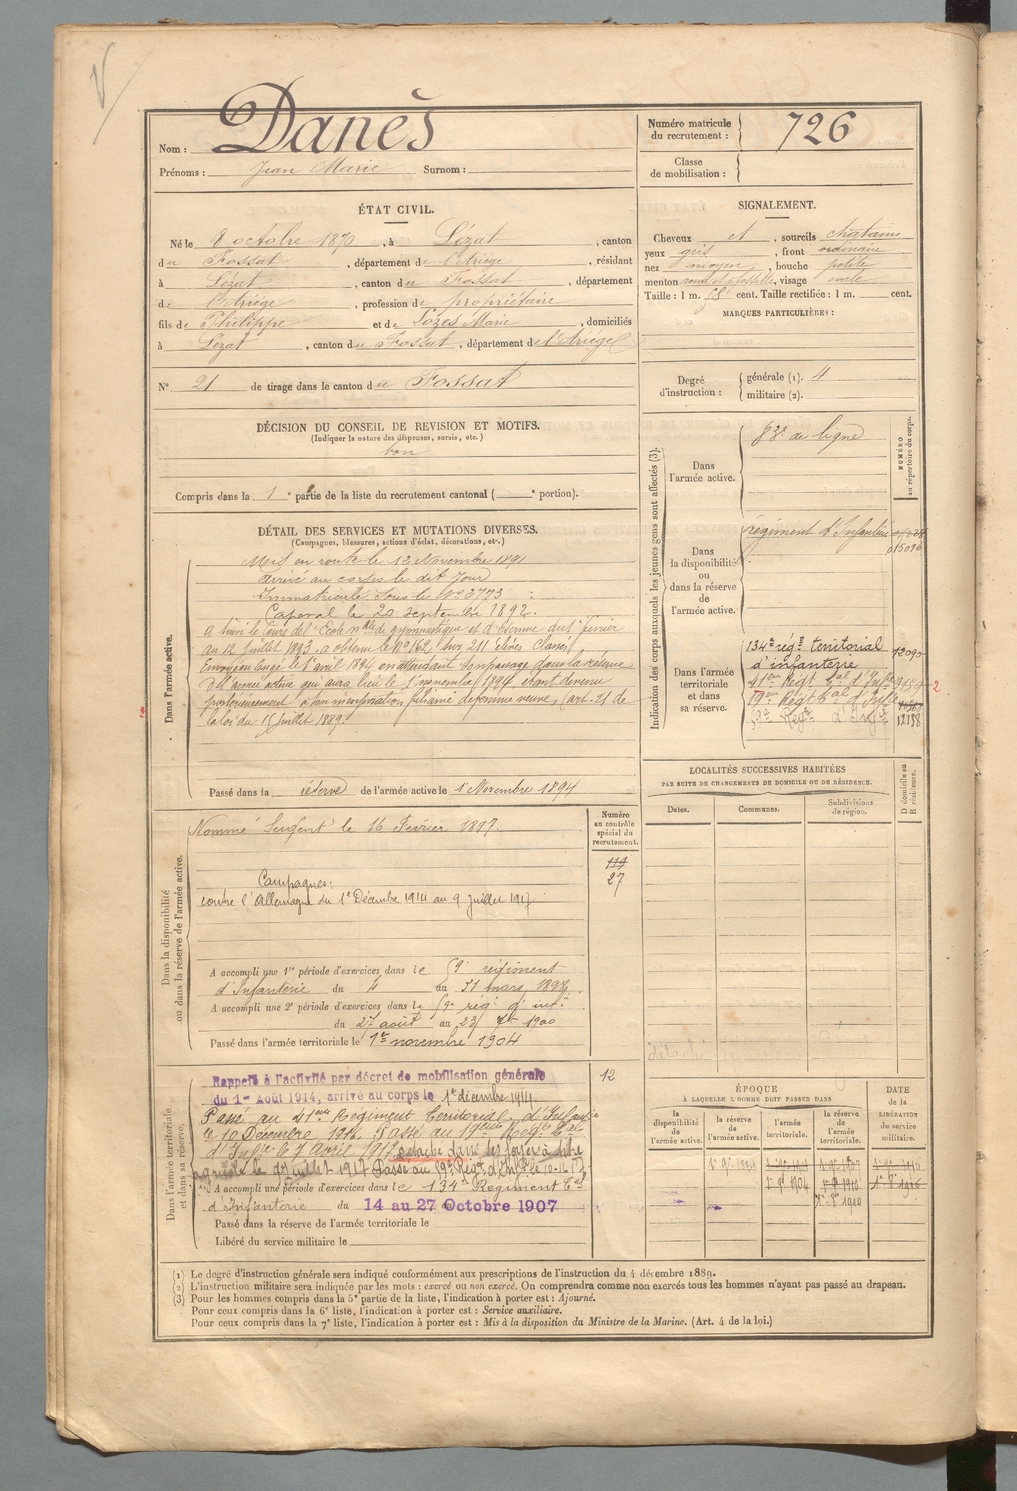 Nom : Danès
Prénoms : Jean Marie Surnom :
Numéro matricule du recrutement : 726
Classe de mobilisation :
ÉTAT CIVIL.
Né le 8 octobre 1870, à Lézat, canton
du Fossat, département de l'Ariège, résidant
à Lézat, canton du Fossat, département
de l'Ariège, profession de propriétaire
fils de Philippe et de Lozes Marie, domiciliés
à Lézat, canton du Fossat, département de l'Ariège
N° 21 de tirage dans le canton du Fossat
SIGNALEMENT.
Cheveux et, sourcils chatains
yeux gris, front ordinaire
nez moyen, bouche petite
menton rond et à fossette, visage ovale
Taille : 1 m. 58 cent. Taille rectifiée : 1 m. cent.
MARQUES PARTICULIÈRES :
Degré d'instruction : générale (1). 4
militaire (2).
DÉCISION DU CONSEIL DE REVISION ET MOTIFS.
(Indiquer la nature des dispenses, sursis, etc.)
bon
Compris dans la 1e partie de la liste du recrutement cantonal ( e portion).
DÉTAIL DES SERVICES ET MUTATIONS DIVERSES.
(Campagnes, blessures, actions d'éclat, décorations, etc.)
Dans l'armée active.
Mis en route le 12 Novembre 1891
arrivé au corps le dit jour
Immatriculé sous le N° 3773
Caporal le 20 septembre 1892.
A suivi le cours de l'École nale de gymnastique et d'Escrime du 1er février
au 12 juillet 1893, a obtenu le N° 162 sur 211 elèves classés
Envoyé en congé le 1er avril 1894 en attendant son passage dans la réserve
de l'armée active qui aura lieu le 1 novembre 1894 etant devenu
postérieurement à son incorporation fils aîné de femme veuve, (art. 21 de
la loi du 15 Juillet 1889
Passé dans la réserve de l'armée active le 1 Novembre 1894
Indication des corps auxquels les jeunes gens sont affectés (3).
NUMÉRO au répertoire du corps.
Dans l'armée active.
83e de ligne
Dans la disponibilité ou dans la réserve de l'armée active.
régiment d'Infanterie
015096
Dans l'armée territoriale et dans sa réserve.
134e régt territorial
d'infanterie 12090
41eme Régt Tal d'Infie
19eme Régt Tal d'Infie
59e Régt d'Infie 12188
LOCALITÉS SUCCESSIVES HABITÉES
PAR SUITE DE CHANGEMENTS DE DOMICILE OU DE RÉSIDENCE.
Dates. Communes. Subdivisions de région. D domicile ou R résidence.
Dans la disponibilité ou dans la réserve de l'armée active.
Nommé Sergent le 16 Février 1897.
Numéro au contrôle spécial du recrutement.
119
27
Campagnes :
contre l'Allemagne du 1er Décembre 1914 au 9 Juillet 1917
A accompli une 1re période d'exercices dans le 59e régiment
d'Infanterie du 4 au 31 mars 1898.
A accompli une 2e période d'exercices dans le 59e régt d'infie
du 27 août au 23 7bre 1900
Passé dans l'armée territoriale le 1er novembre 1904
Dans l'armée territoriale et dans sa réserve.
Rappelé à l'activité par décret de mobilisation générale
du 1er Août 1914, arrivé au corps le 1er décembre 1914.
12
Passé au 41eme Régiment Territorial d'Infanie
le 10 Décembre 1914. Passé au 19eme Régt Tal
d'Infie le 7 Avril 1917, détaché dans ses foyers à titre
agricole le 9 Juillet 1917 Passé au 59e Régt d'Infie le 10-11-17
A accompli une période d'exercices dans le 134e Régiment Tal
d'Infanterie du 14 au 27 Octobre 1907
Passé dans la réserve de l'armée territoriale le
Libéré du service militaire le
ÉPOQUE
À LAQUELLE L'HOMME DOIT PASSER DANS
la disponibilité de l'armée active. la réserve de l'armée active. l'armée territoriale. la réserve de l'armée territoriale.
DATE de la LIBÉRATION du service militaire.
1er 9bre 1894
1er 9bre 1904 1er 8bre 1910 1er 8bre 1916
(1) Le degré d'instruction générale sera indiqué conformément aux prescriptions de l'instruction du 4 décembre 1889.
(2) L'instruction militaire sera indiquée par les mots : exercé ou non exercé. On comprendra comme non exercés tous les hommes n'ayant pas passé au drapeau.
(3) Pour les hommes compris dans la 5e partie de la liste, l'indication à porter est : Ajourné.
Pour ceux compris dans la 6e liste, l'indication à porter est : Service auxiliaire.
Pour ceux compris dans la 7e liste, l'indication à porter est : Mis à la disposition du Ministre de la Marine. (Art. 4 de la loi.)